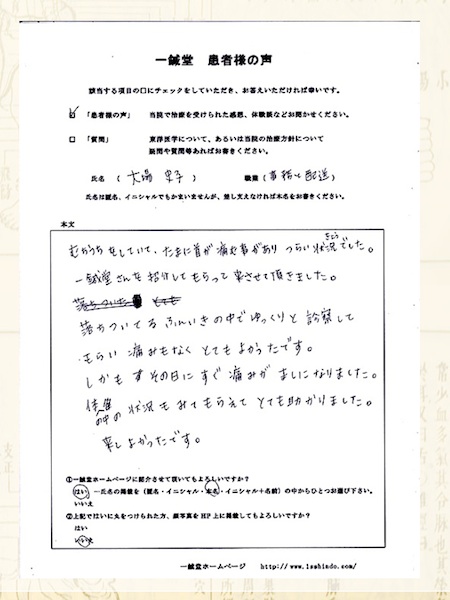 一鍼堂 患者様の声
該当する項目の口にチェックをしていただき、お答えいただければ幸いです。
「患者様の声」 当院で治療を受けられた感想、体験談などお聞かせください。
「質問」 東洋医学について、あるいは当院の治療方針について
疑問や質問等あればお書きください。
氏名 ( 大場 ) 職業 ( 事務と配送 )
氏名は匿名、イニシャルでもかまいませんが、差し支えなければ本名をお書きください。
本文
むちうちをしていて、たまに首が痛む事があり つらい状況でした。
一鍼堂さんを紹介してもらって 来させて頂きました。
落ちついてるふんいきの中でゆっくりと 診察して
もらい 痛みもなく とてもよかったです。
しかも その日に すぐ 痛みが ましになりました。
の中の 状況も みてもらえて とても助かりました。
来しよかったです。
①一鍼堂ホームページに紹介させて頂いてもよろしいですか？
はい ―氏名の掲載を (匿名・イニシャル・本名・イニシャル+名前) の中からひとつお選び下さい。
いいえ
②上記ではいに丸をつけられた方、顔写真を HP 上に掲載してもよろしいですか？
はい
いいえ
一鍼堂ホームページ http://www.1sshindo.com/